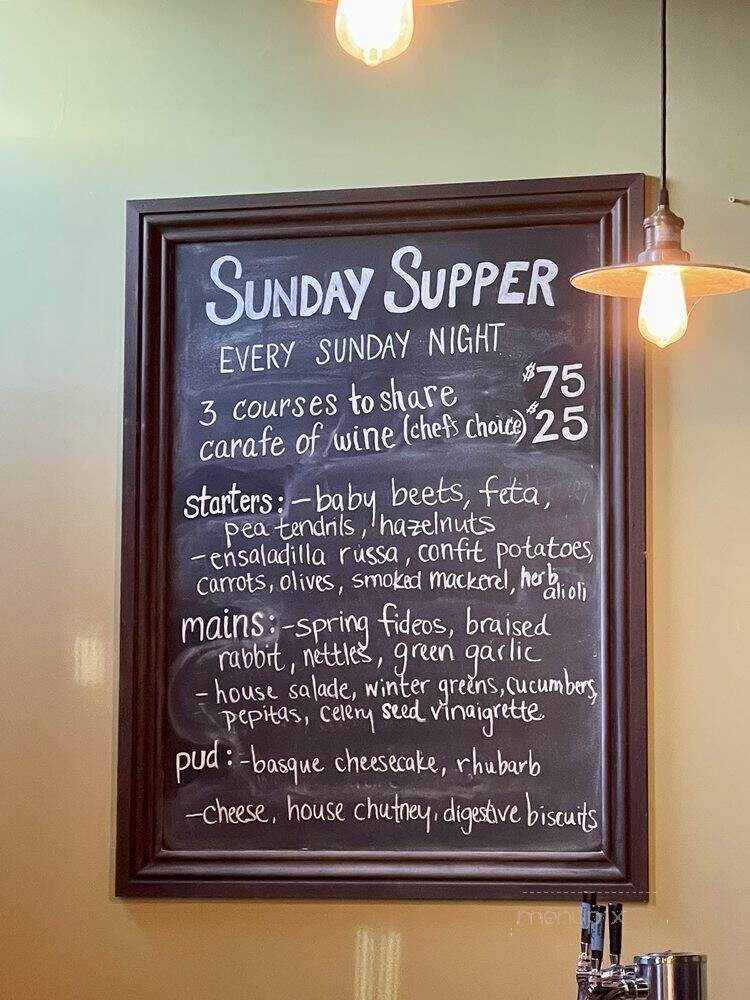 SUNDAY SUPPER
EVERY SUNDAY NIGHT
3 courses to share $75
carafe of wine (chefs choice) $25
starters: - baby beets, feta,
pea tendrils, hazelnuts
- ensaladilla russa, confit potatoes,
carrots, olives, smoked mackerel, herb
alioli
mains: - spring fideos, braised
rabbit, nettles, green garlic
- house salade, winter greens, cucumbers,
pepitas, celery seed vinaigrette
pud: - basque cheesecake, rhubarb
- cheese, house chutney, digestive biscuits
menupix